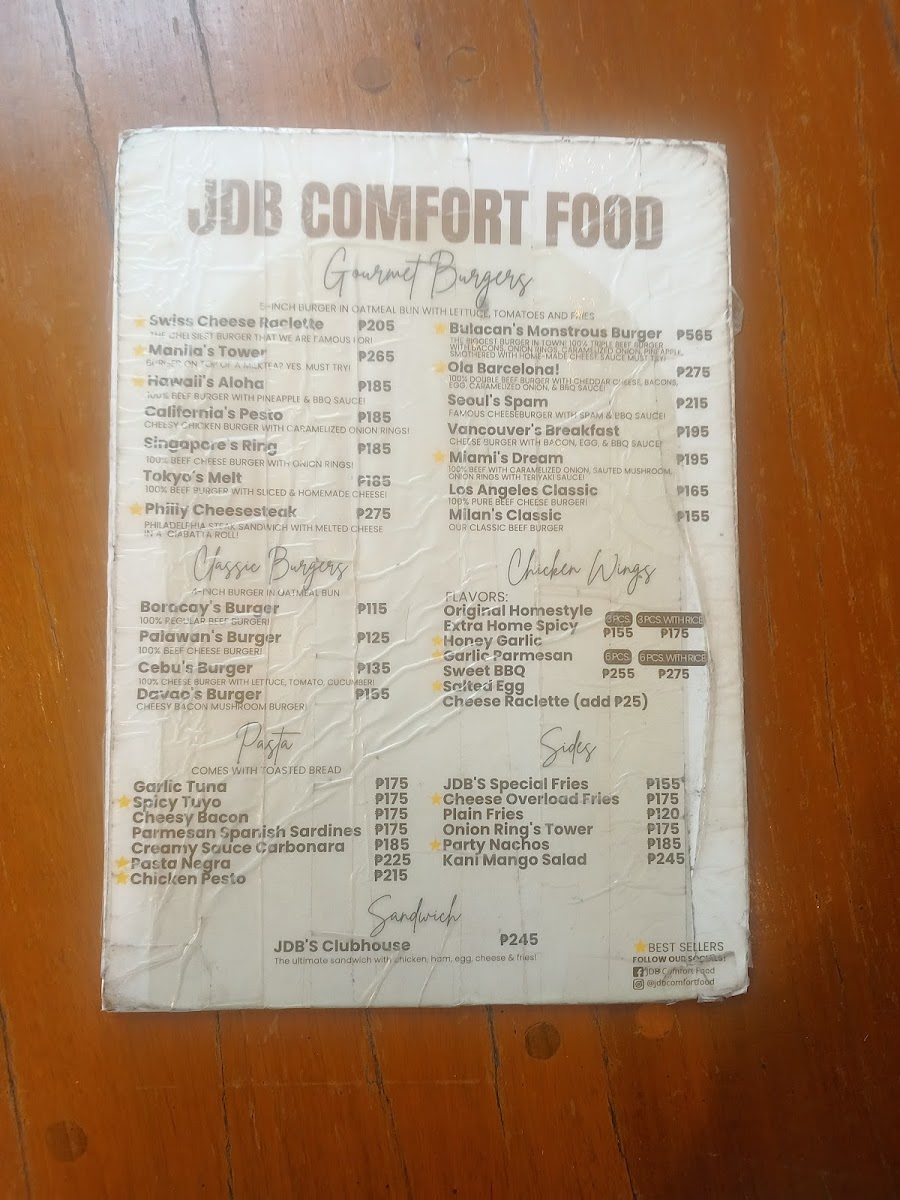 JDB COMFORT FOOD
Gourmet Burgers
5-INCH BURGER IN OATMEAL BUN WITH LETTUCE, TOMATOES AND FRIES
Swiss Cheese Raclette ₱205
THE CHEESIEST BURGER THAT WE ARE FAMOUS FOR!
Manila's Tower ₱265
BURGER ON TOP OF A MILKTEA? YES, MUST TRY!
Hawaii's Aloha ₱185
100% BEEF BURGER WITH PINEAPPLE & BBQ SAUCE!
California's Pesto ₱185
CHEESY CHICKEN BURGER WITH CARAMELIZED ONION RINGS!
Singapore's Ring ₱185
100% BEEF CHEESE BURGER WITH ONION RINGS!
Tokyo's Melt ₱185
100% BEEF BURGER WITH SLICED & HOMEMADE CHEESE!
Philly Cheesesteak ₱275
PHILADELPHIA STEAK SANDWICH WITH MELTED CHEESE
IN A CIABATTA ROLL!
Bulacan's Monstrous Burger ₱565
THE BIGGEST BURGER IN TOWN. 100% TRIPLE BEEF BURGER
WITH BACONS, ONION RINGS, CARAMELIZED ONION, PINEAPPLE,
SMOTHERED WITH HOME-MADE CHEESE SAUCE MUST TRY!
Ola Barcelona! ₱275
100% DOUBLE BEEF BURGER WITH CHEDDAR CHEESE, BACONS,
EGG, CARAMELIZED ONION, & BBQ SAUCE!
Seoul's Spam ₱215
FAMOUS CHEESEBURGER WITH SPAM & BBQ SAUCE!
Vancouver's Breakfast ₱195
CHEESE BURGER WITH BACON, EGG, & BBQ SAUCE!
Miami's Dream ₱195
100% BEEF WITH CARAMELIZED ONION, SAUTED MUSHROOM,
ONION RINGS WITH TERIYAKI SAUCE!
Los Angeles Classic ₱165
100% PURE BEEF CHEESE BURGER!
Milan's Classic ₱155
OUR CLASSIC BEEF BURGER
Classic Burgers
4-INCH BURGER IN OATMEAL BUN
Boracay's Burger ₱115
100% REGULAR BEEF BURGER!
Palawan's Burger ₱125
100% BEEF CHEESE BURGER!
Cebu's Burger ₱135
100% CHEESE BURGER WITH LETTUCE, TOMATO, CUCUMBER!
Davao's Burger ₱155
CHEESY BACON MUSHROOM BURGER!
Chicken Wings
FLAVORS:
Original Homestyle
Extra Home Spicy
Honey Garlic
Garlic Parmesan
Sweet BBQ
Salted Egg
Cheese Raclette (add ₱25)
3 PCS. 3 PCS. WITH RICE
₱155 ₱175
6 PCS. 6 PCS. WITH RICE
₱255 ₱275
Pasta
COMES WITH TOASTED BREAD
Garlic Tuna ₱175
Spicy Tuyo ₱175
Cheesy Bacon ₱175
Parmesan Spanish Sardines ₱175
Creamy Sauce Carbonara ₱185
Pasta Negra ₱225
Chicken Pesto ₱215
Sides
JDB'S Special Fries ₱155
Cheese Overload Fries ₱175
Plain Fries ₱120
Onion Ring's Tower ₱175
Party Nachos ₱185
Kani Mango Salad ₱245
Sandwich
JDB'S Clubhouse ₱245
The ultimate sandwich with chicken, ham, egg, cheese & fries!
BEST SELLERS
FOLLOW OUR SOCIALS!
JDB Comfort Food
@jdbcomfortfood